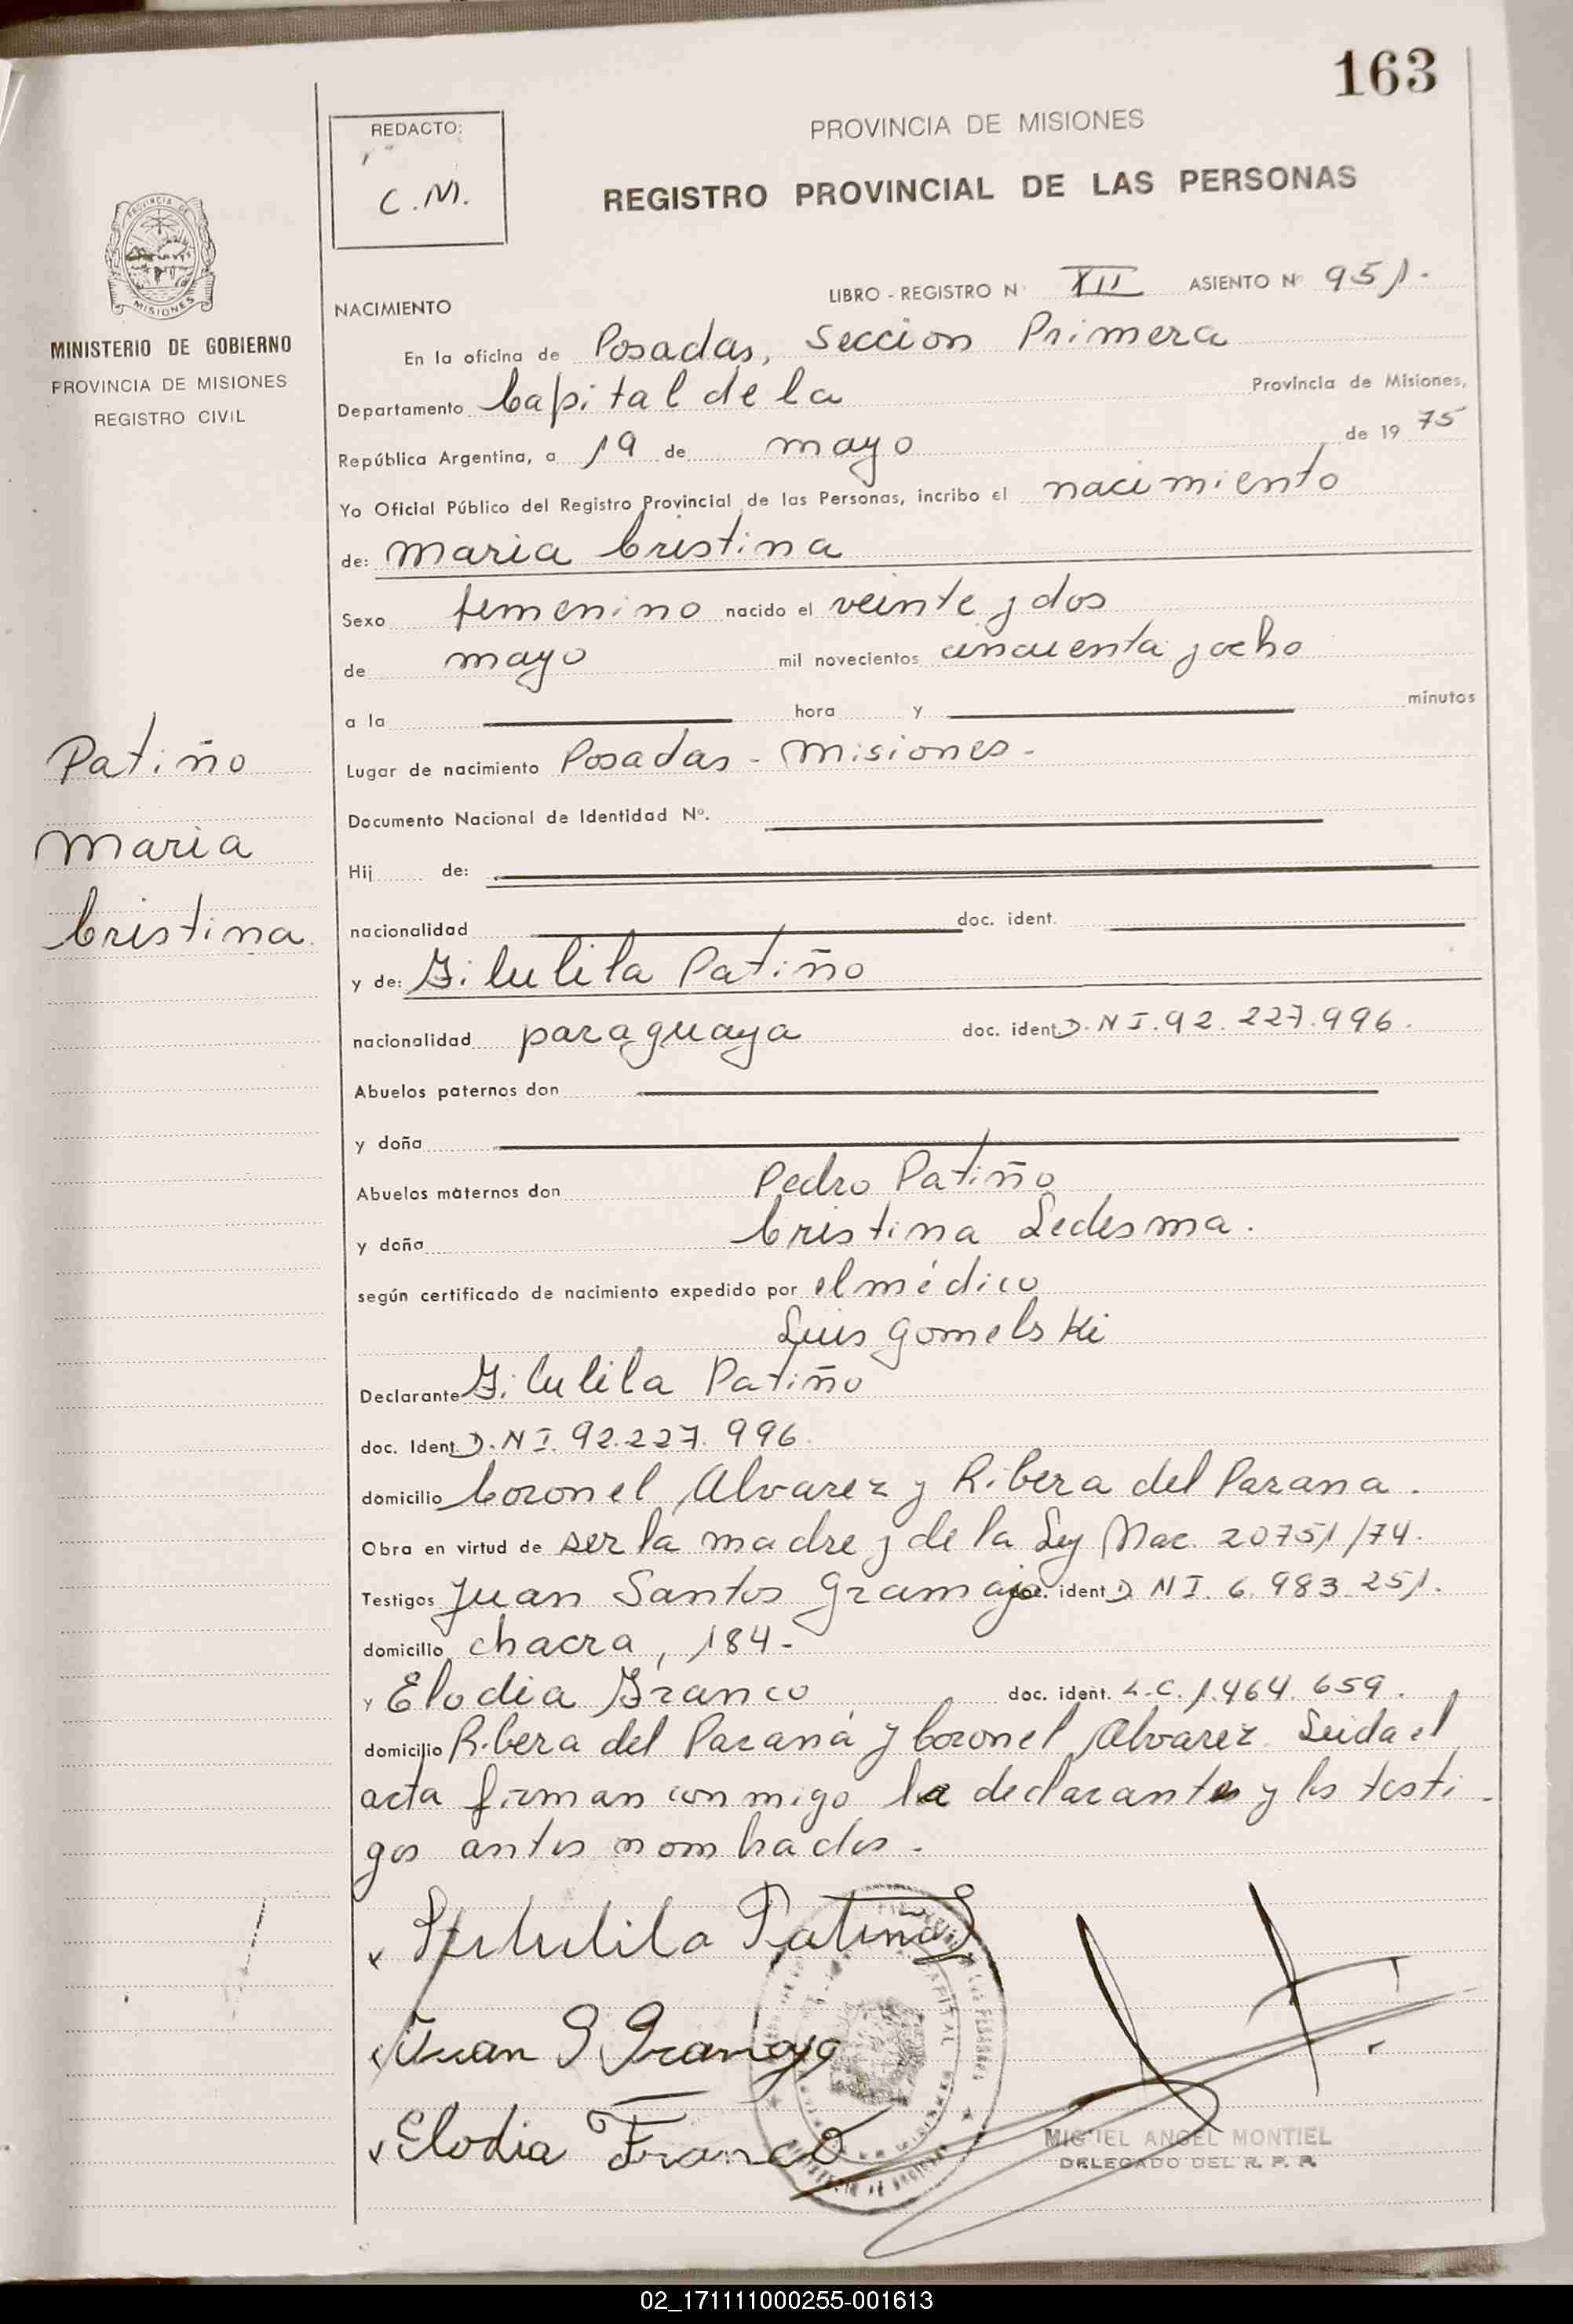 163
REDACTO:
C.M.
PROVINCIA DE MISIONES
REGISTRO PROVINCIAL DE LAS PERSONAS
MISIONES
MINISTERIO DE GOBIERNO
PROVINCIA DE MISIONES
REGISTRO CIVIL
LIBRO - REGISTRO N° XII ASIENTO N° 951.
NACIMIENTO
En la oficina de Posadas, Seccion Primera
Departamento Capital de la Provincia de Misiones,
República Argentina, a 19 de mayo de 1975
Yo Oficial Público del Registro Provincial de las Personas, incribo el nacimiento
de: Maria Cristina
Sexo femenino nacido el veinte y dos
de mayo mil novecientos cincuenta y ocho
a la hora y minutos
Patiño
Maria
Cristina
Lugar de nacimiento Posadas - Misiones.
Documento Nacional de Identidad Nº.
Hij de:
nacionalidad doc. ident.
y de: Patiño
nacionalidad paraguaya doc. ident D.N I. 92.227.996.
Abuelos paternos don
y doña
Abuelos maternos don Pedro Patiño
y doña Cristina Ledesma.
según certificado de nacimiento expedido por el médico
Luis Gomelski
Declarante Patiño
doc. Ident. D.N I. 92.227.996.
domicilio Coronel Alvarez y Ribera del Parana.
Obra en virtud de ser la madre y de la Ley Nac. 20751/74.
Testigos Juan Santos Gramajo doc. ident D N I. 6.983.251.
domicilio chacra, 184-
y Elodia Franco doc. ident. L.C. 1.464.659.
domicilio Ribera del Paraná y Coronel Alvarez. Leida el
acta firman conmigo la declarante y los testi-
gos antes nombrados.
Patiño
Juan S Gramajo
Elodia Franco
MIGUEL ANGEL MONTIEL
DELEGADO DEL R. P. P.
02_171111000255-001613